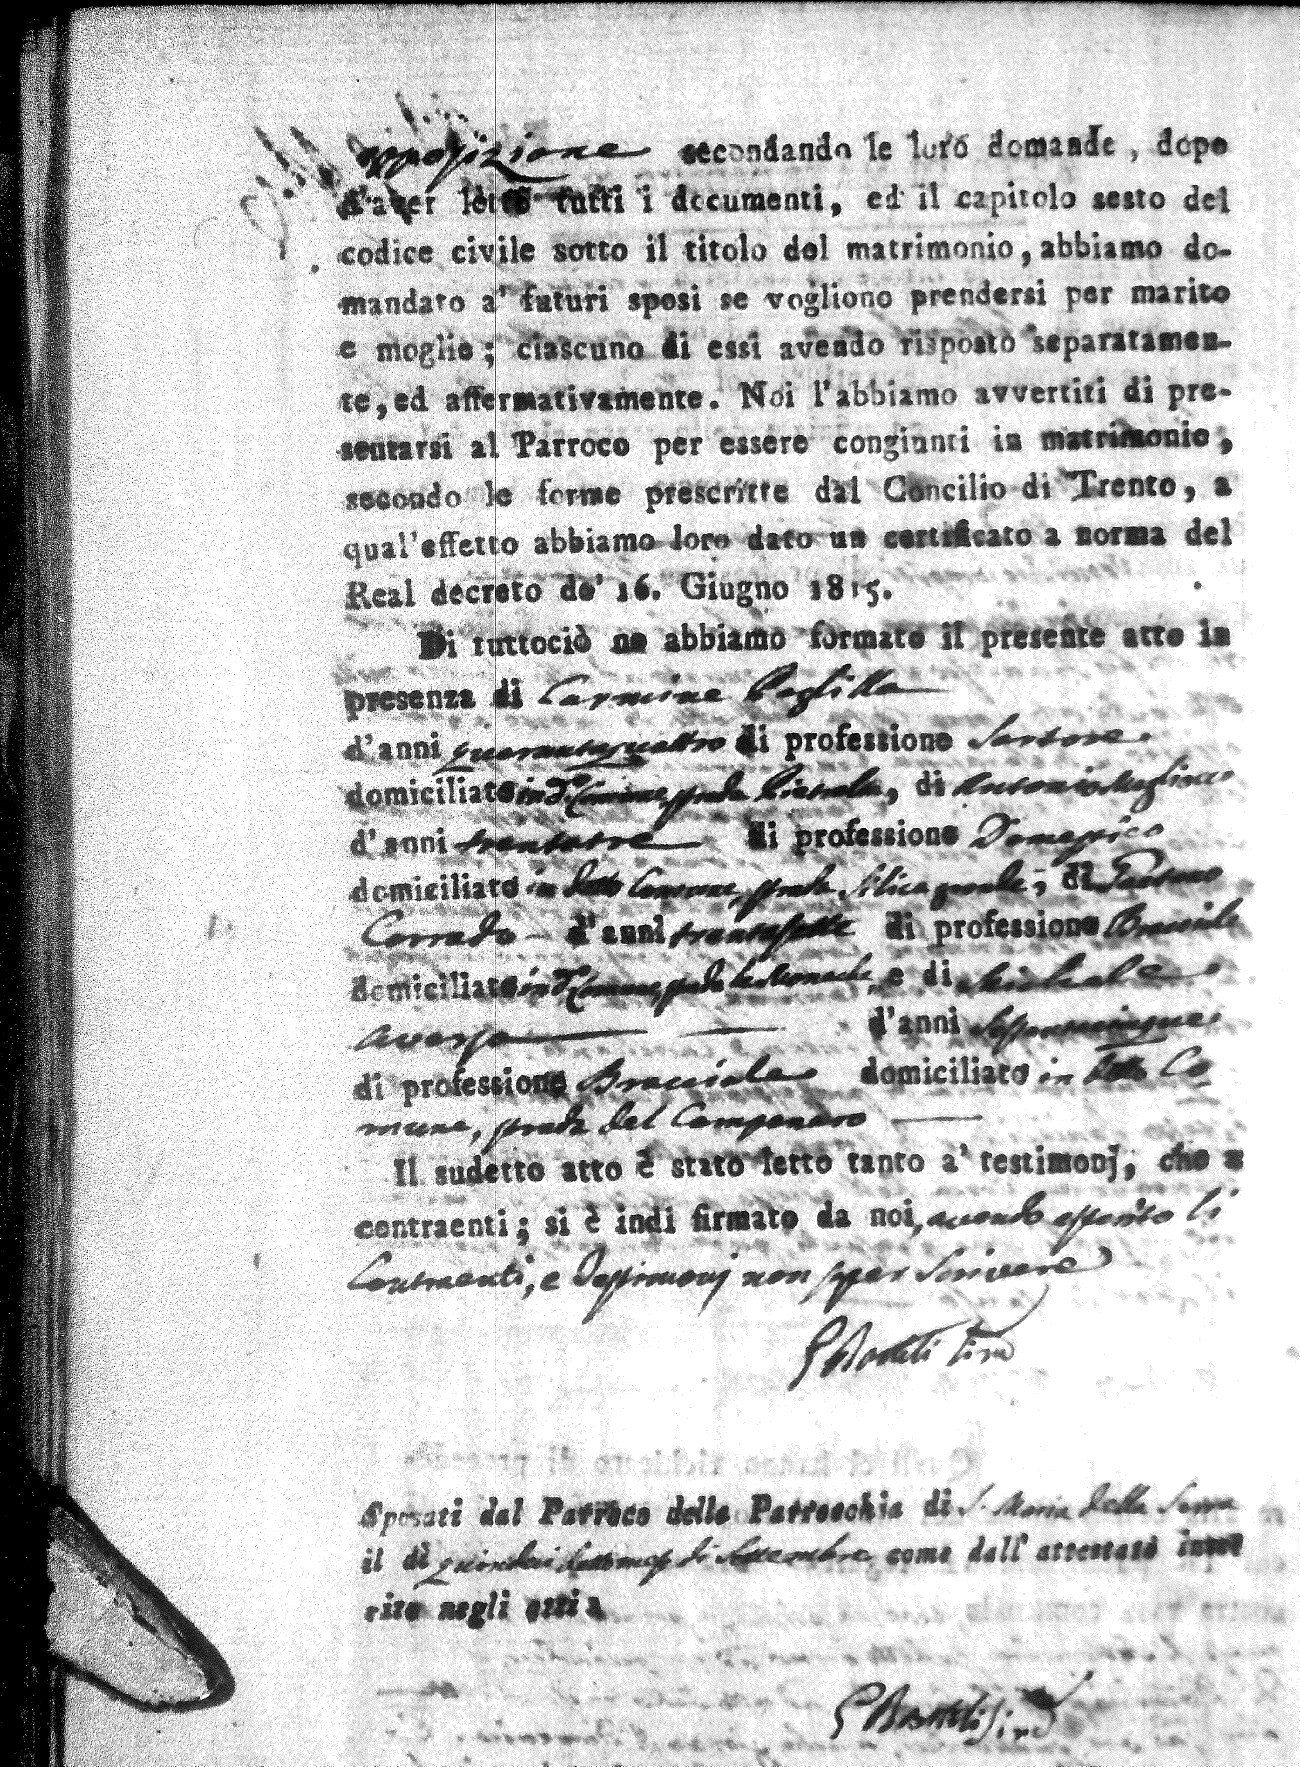 opposizione secondando le loro domande, dopo
d'aver letto tutti i documenti, ed il capitolo sesto del
codice civile sotto il titolo del matrimonio, abbiamo do-
mandato a' futuri sposi se vogliono prendersi per marito
e moglie; ciascuno di essi avendo risposto separatamen-
te, ed affermativamente. Noi l'abbiamo avvertiti di pre-
sentarsi al Parroco per essere congiunti in matrimonio,
secondo le forme prescritte dal Concilio di Trento, a
qual'effetto abbiamo loro dato un certificato a norma del
Real decreto de' 16. Giugno 1815.
Di tuttociò ne abbiamo formato il presente atto in
presenza di Carmine
d'anni quarantaquattro di professione Sartore
domiciliato in d.º Comune, strada, di Antonio
d'anni trentatre di professione Domestico
domiciliato in detto Comune, strada; di Gaetano
Corrado d'anni trentasette di professione Bracciale
domiciliato in d.º Comune, strada, e di Michele
Aversa d'anni
di professione Bracciale domiciliato in detto Co-
mune, strada del Campanaro
Il sudetto atto è stato letto tanto a' testimonj, che a
contraenti; si è indi firmato da noi, avendo asserito li
Contraenti, e Testimonj non saper scrivere
Sposati dal Parroco della Parrocchia di S. Maria della Serra
il dì quindici detto mese di Settembre come dall' attestato inse
rito negli atti